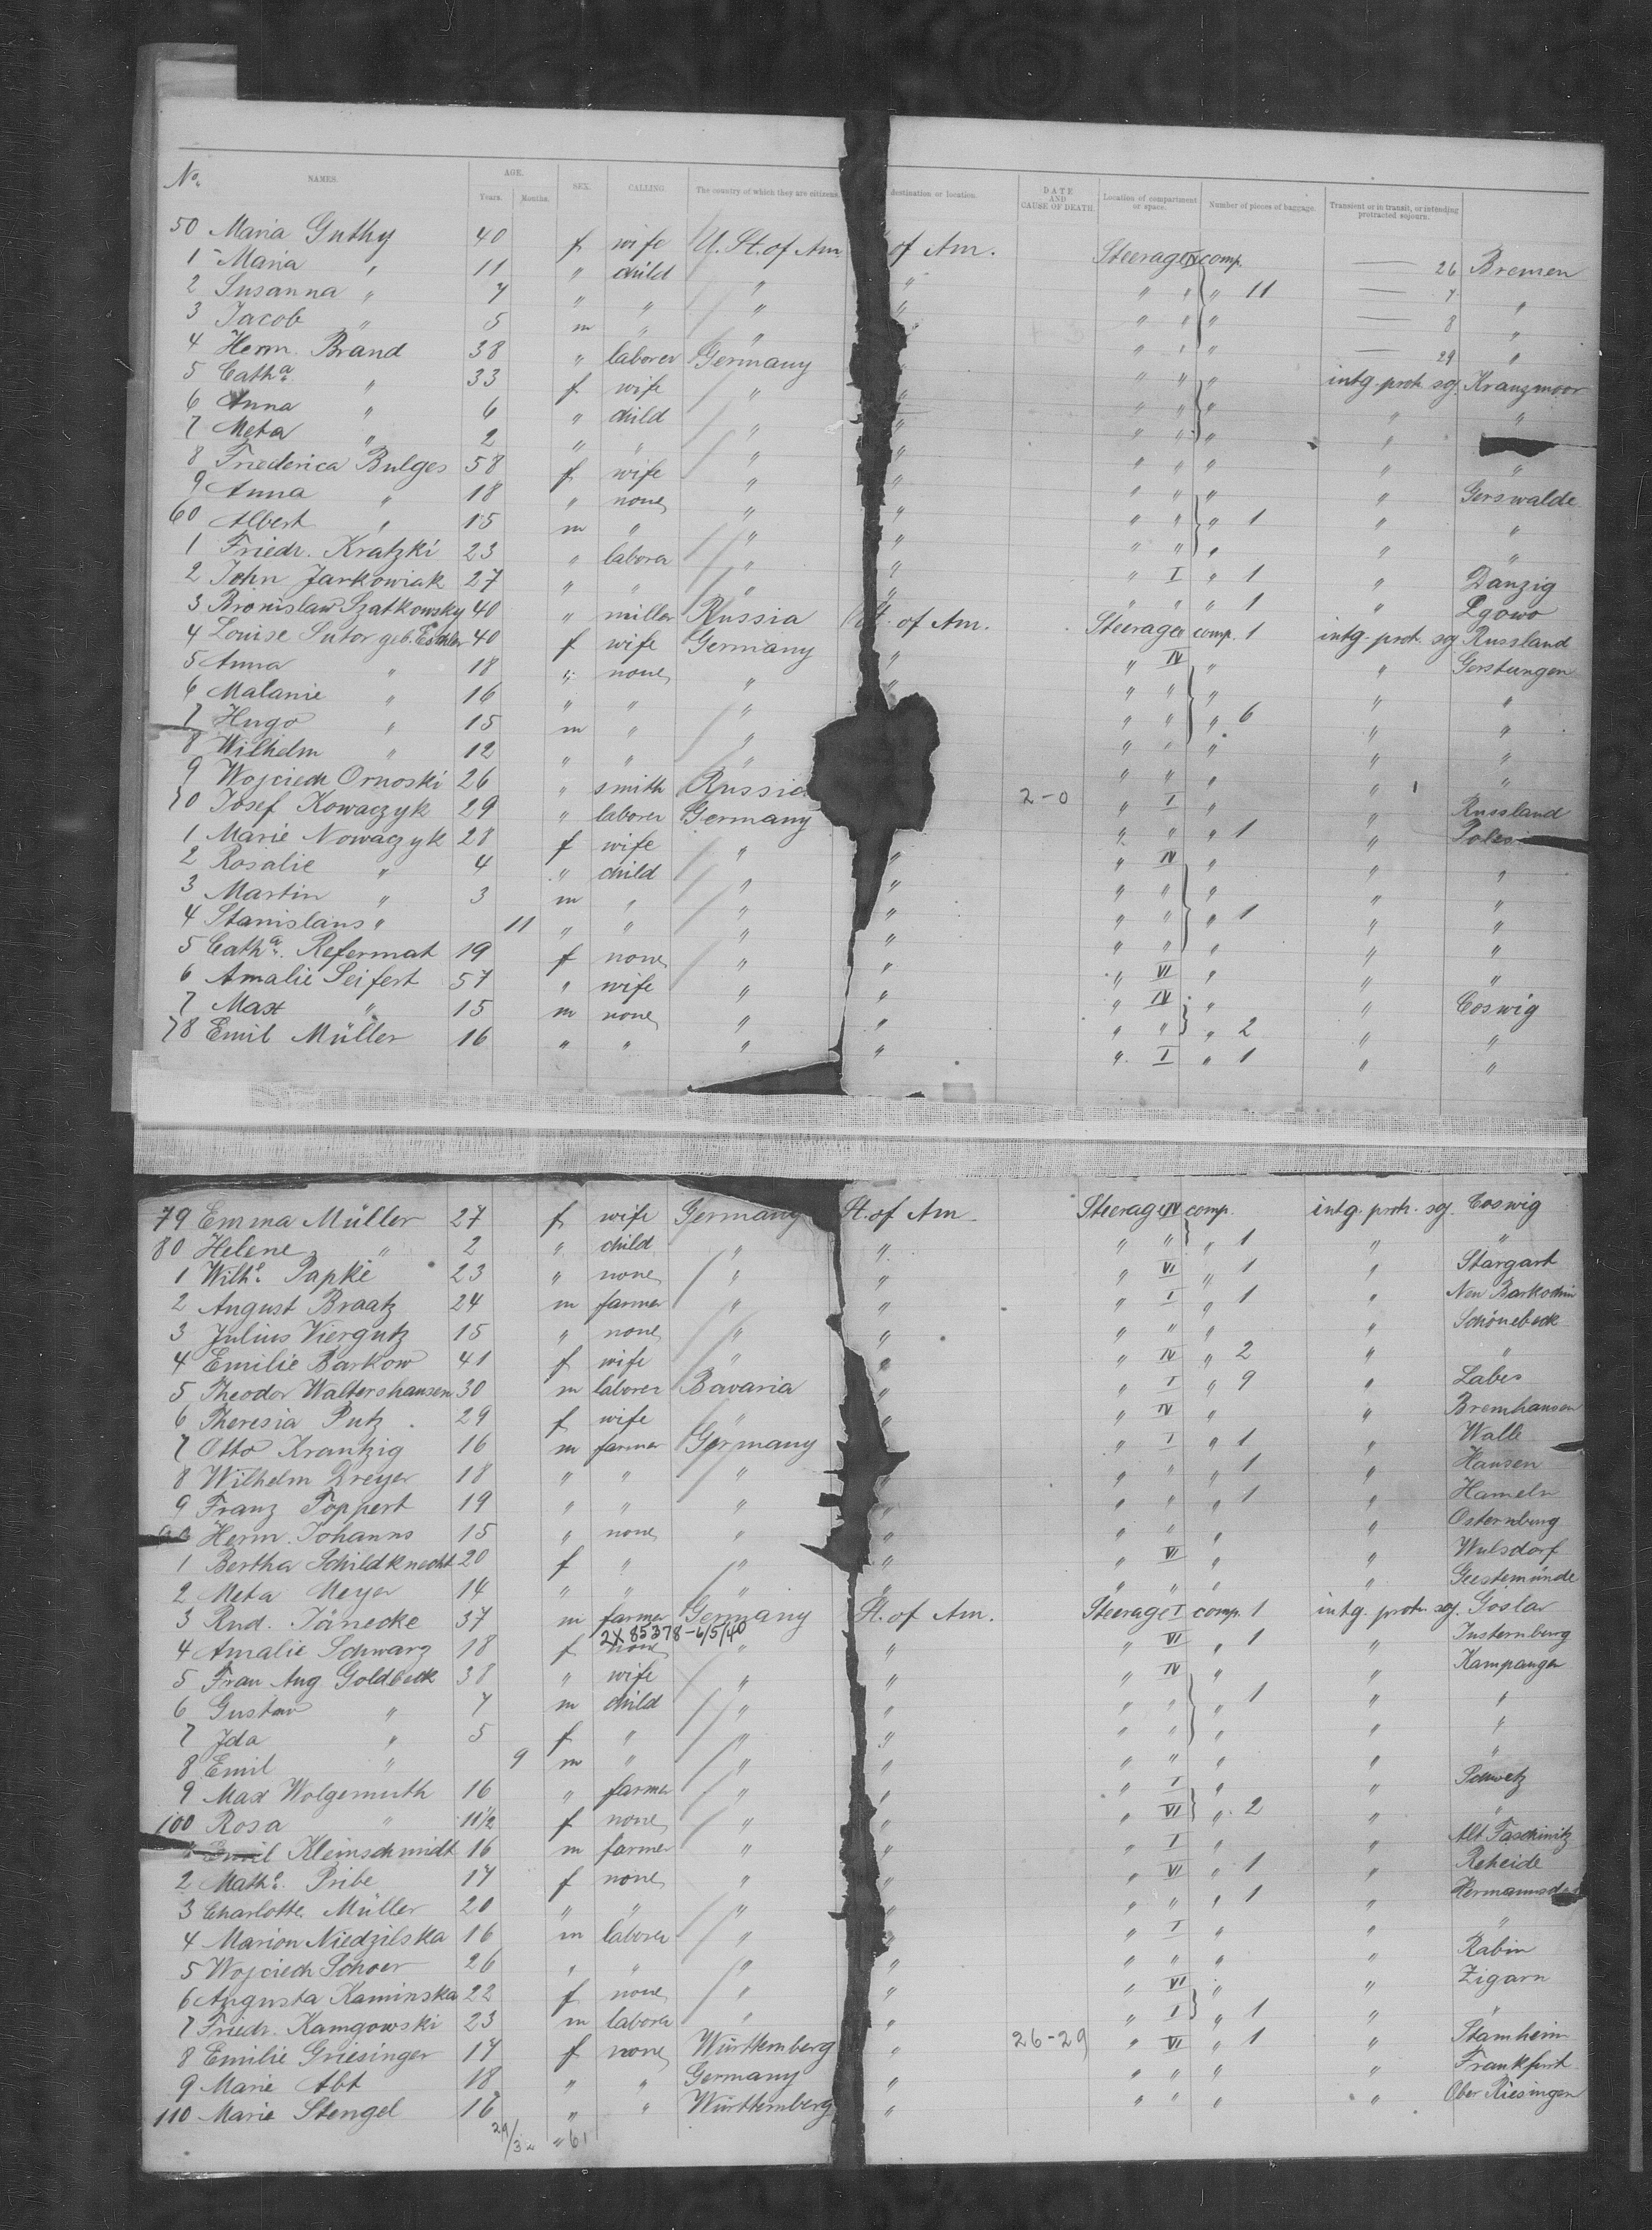 No. NAMES. AGE. Years. Months. SEX. CALLING. The country of which they are citizens. destination or location. DATE AND CAUSE OF DEATH. Location of compartment or space. Number of pieces of baggage. Transient or in transit, or intending protracted sojourn.
50 Maria Guthy 40 f wife U. St. of Am of Am. Steerage comp. 26 Bremen
1 Maria " 11 " child " " " " " 11 7 "
2 Susanna " 7 " " " " " " " 8 "
3 Jacob " 5 m " " " " " " 29 "
4 Herm. Brand 38 " laborer Germany " " " " intg. prot. soj. Kranzmoor
5 Catha. " 33 f wife " " " " " " "
6 Anna " 6 " child " " " " " "
7 Meta " 2 " " " " " " " " "
8 Friederica Bulges 58 f wife " " " " " " Gerswalde
9 Anna " 18 " none " " " " " 1 " "
60 Albert " 15 m " " " " " " " "
1 Friedr. Kratzki 23 " laborer " " " I " 1 " Danzig
2 John Jarkowiak 27 " " " " " " " 1 " Lgowo
3 Bronislaw Szatkowsky 40 " miller Russia St. of Am. Steerage comp. 1 intg. prot. soj. Russland
4 Louise Sutor geb. 40 f wife Germany " " IV " " Gerstungen
5 Anna " 18 " none " " " " " " "
6 Malanie " 16 " " " " " " " 6 " "
7 Hugo " 15 m " " " " " " "
8 Wilhelm " 12 " " " " " " " "
9 Wojciech Ornoski 26 " smith Russia 2-0 " I " " Russland
70 Josef Kowaczyk 29 " laborer Germany " " " 1 "
1 Marie Nowaczyk 28 f wife " " " IV " " "
2 Rosalie " 4 " child " " " " " " "
3 Martin " 3 m " " " " " " 1 " "
4 Stanislaus " 11 " " " " " " " " "
5 Catha. Refermat 19 f none " " " VI " " "
6 Amalie Seifert 57 " wife " " " IV " " Coswig
7 Max " 15 m none " " " " " 2 " "
78 Emil Müller 16 " " " " " I " 1 " "
79 Emma Müller 27 f wife Germany St. of Am. Steerage IV comp. intg. prot. soj. Coswig
80 Helene " 2 " child " " " " " 1 " "
1 Wilhe. Papke 23 " none " " " VI " 1 " Stargart
2 August Braatz 24 m farmer " " " I " 1 " Neu Barkoschin
3 Julius Viergutz 15 " none " " " " " " Schönebeck
4 Emilie Barkow 41 f wife " " " IV " 2 " "
5 Theodor Waltershausen 30 m laborer Bavaria " " I " 9 " Labes
6 Theresia Putz 29 f wife " " " IV " " Bremhausen
7 Otto Krantzig 16 m farmer Germany " " I " 1 " Walle
8 Wilhelm Dreyer 18 " " " " " " " 1 " Hausen
9 Franz Toppert 19 " " " " " " " 1 " Hameln
90 Herm. Johanns 15 " none " " " " " " Osternburg
1 Bertha Schildknecht 20 f " " " " VI " " Wulsdorf
2 Meta Meyer 14 " " " " " " " " Geestemünde
3 Rud. Jänecke 37 m farmer Germany St. of Am. Steerage I comp. 1 intg. prot. soj. Goslar
2X 85378-6/5/40
4 Amalie Schwarz 18 f none " " " VI " 1 " Insternburg
5 Frau Aug Goldbeck 38 " wife " " " IV " " Kampangen
6 Gustav " 7 m child " " " " " 1 " "
7 Ida " 5 f " " " " " " " "
8 Emil " 9 m " " " " " " " "
9 Max Wolgemuth 16 " farmer " " " I " " Schwetz
100 Rosa " 11½ f none " " " VI " 2 " "
1 Emil Kleinschmidt 16 m farmer " " " I " " Alt Faschinitz
2 Mathe. Pribe 17 f none " " " VI " 1 " Reheide
3 Charlotte Müller 20 " " " " " " " 1 " Hermannsd
4 Marion Niedzilska 16 m laborer " " " I " " "
5 Wojciech Schoer 26 " " " " " " " " Rabin
6 Augusta Kaminska 22 f none " " " VI " " Zigarn
7 Friedr. Kamgowski 23 m laborer " " " I " 1 " "
8 Emilie Griesinger 17 f none Württemberg " 26-29 " VI " 1 " Stamheim
9 Marie Abt 18 " " Germany " " " " " Frankfurt
110 Marie Stengel 16 " " Württemberg " " " " " Ober Riesingen
29/32 " 61